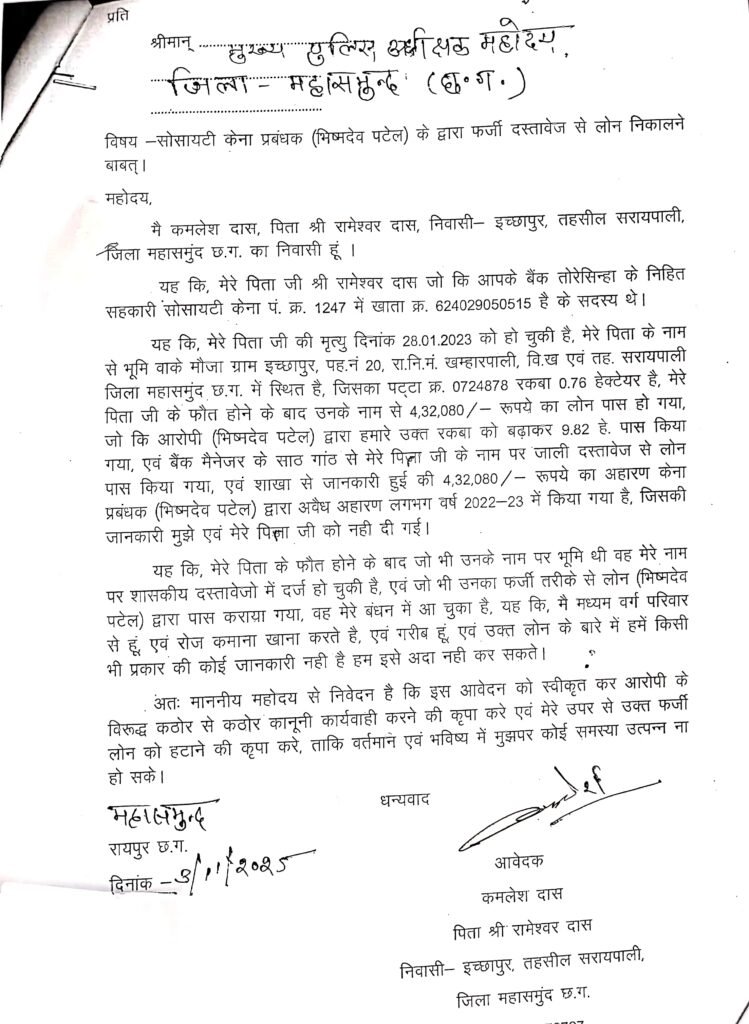 प्रति
श्रीमान् मुख्य पुलिस अधीक्षक महोदय,
जिला - महासमुन्द (छ.ग.)
विषय –सोसायटी केना प्रबंधक (भिष्मदेव पटेल) के द्वारा फर्जी दस्तावेज से लोन निकालने
बाबत्।
महोदय,
मै कमलेश दास, पिता श्री रामेश्वर दास, निवासी– इच्छापुर, तहसील सरायपाली,
जिला महासमुंद छ.ग. का निवासी हूं ।
यह कि, मेरे पिता जी श्री रामेश्वर दास जो कि आपके बैंक तोरेसिन्हा के निहित
सहकारी सोसायटी केना पं. क्र. 1247 में खाता क्र. 624029050515 है के सदस्य थे।
यह कि, मेरे पिता जी की मृत्यु दिनांक 28.01.2023 को हो चुकी है, मेरे पिता के नाम
से भूमि वाके मौजा ग्राम इच्छापुर, पह.नं 20, रा.नि.मं. खम्हारपाली, वि.ख एवं तह. सरायपाली
जिला महासमुंद छ.ग. में स्थित है, जिसका पट्टा क्र. 0724878 रकबा 0.76 हेक्टेयर है, मेरे
पिता जी के फौत होने के बाद उनके नाम से 4,32,080/– रूपये का लोन पास हो गया,
जो कि आरोपी (भिष्मदेव पटेल) द्वारा हमारे उक्त रकबा को बढ़ाकर 9.82 हे. पास किया
गया, एवं बैंक मैनेजर के साठ गांठ से मेरे पिता जी के नाम पर जाली दस्तावेज से लोन
पास किया गया, एवं शाखा से जानकारी हुई की 4,32,080/– रूपये का अहारण केना
प्रबंधक (भिष्मदेव पटेल) द्वारा अवैध अहारण लगभग वर्ष 2022–23 में किया गया है, जिसकी
जानकारी मुझे एवं मेरे पिता जी को नही दी गई।
यह कि, मेरे पिता के फौत होने के बाद जो भी उनके नाम पर भूमि थी वह मेरे नाम
पर शासकीय दस्तावेजो में दर्ज हो चुकी है, एवं जो भी उनका फर्जी तरीके से लोन (भिष्मदेव
पटेल) द्वारा पास कराया गया, वह मेरे बंधन में आ चुका है, यह कि, मै मध्यम वर्ग परिवार
से हूं, एवं रोज कमाना खाना करते है, एवं गरीब हूं, एवं उक्त लोन के बारे में हमें किसी
भी प्रकार की कोई जानकारी नही है हम इसे अदा नही कर सकते।
अतः माननीय महोदय से निवेदन है कि इस आवेदन को स्वीकृत कर आरोपी के
विरूद्ध कठोर से कठोर कानूनी कार्यवाही करने की कृपा करे एवं मेरे उपर से उक्त फर्जी
लोन को हटाने की कृपा करे, ताकि वर्तमान एवं भविष्य में मुझपर कोई समस्या उत्पन्न ना
हो सके।
धन्यवाद
महासमुन्द
रायपुर छ.ग.
दिनांक –3/11/2025
आवेदक
कमलेश दास
पिता श्री रामेश्वर दास
निवासी– इच्छापुर, तहसील सरायपाली,
जिला महासमुंद छ.ग.